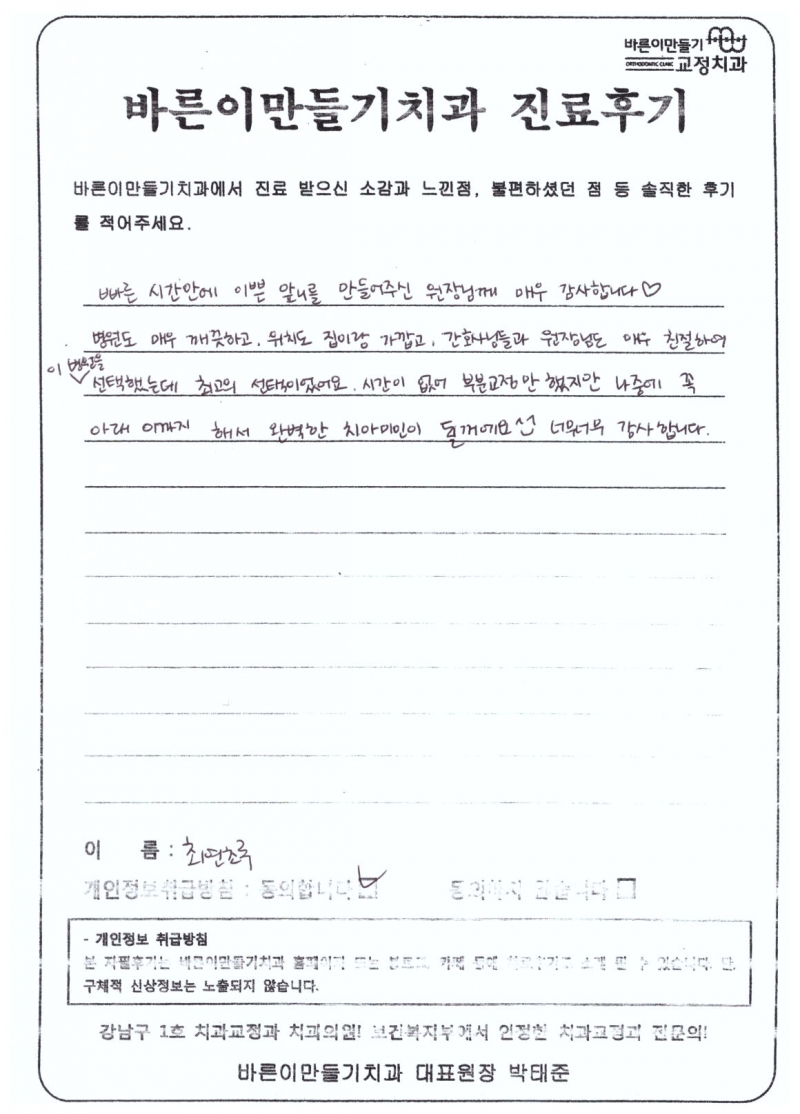 바른이만들기
ORTHODONTIC CLINIC 교정치과
바른이만들기치과 진료후기
바른이만들기치과에서 진료 받으신 소감과 느낀점, 불편하셨던 점 등 솔직한 후기
를 적어주세요.
빠른 시간안에 이쁜 앞니를 만들어주신 원장님께 매우 감사합니다♡
병원도 매우 깨끗하고, 위치도 집이랑 가깝고, 간호사님들과 원장님도 매우 친절하여
이 병원을 선택했는데 최고의 선택이었어요. 시간이 없어 부분교정만 했지만 나중에 꼭
아래 이까지 해서 완벽한 치아미인이 될께에요 너무너무 감사합니다.
이 름 :
개인정보취급방침 : 동의합니다 동의하지 않습니다
- 개인정보 취급방침
본 자필후기는 바른이만들기치과 홈페이지 또는 블로그, 카페 등에 될 수 있습니다. 단,
구체적 신상정보는 노출되지 않습니다.
강남구 1호 치과교정과 치과의원! 보건복지부에서 인정한 치과교정과 전문의!
바른이만들기치과 대표원장 박태준